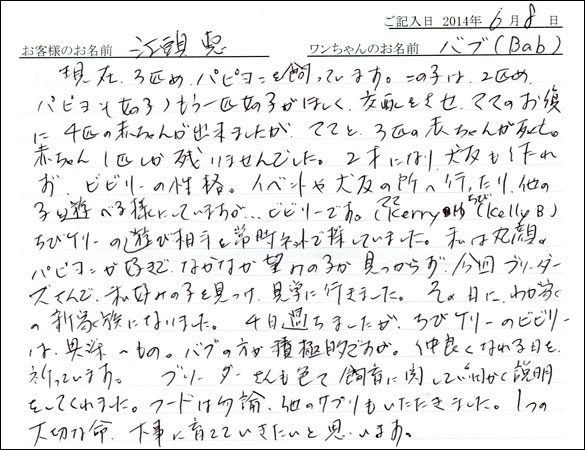 ご記入日 2014年 6月 8日
お客様のお名前 江頭 恵 ワンちゃんのお名前 バブ(Bab)
現在、3匹め、パピヨンを飼っています。この子は、2匹め、
パピヨン(女の子)もう一匹女の子がほしく、交配をさせ、ママのお腹
に 4匹の赤ちゃんが出来ましたが、ママと、3匹の赤ちゃんが死亡。
赤ちゃん 1匹しか残りませんでした。2才になり犬友も作れ
ず、ビビリーの性格。イベントや犬友の所へ行ったり、他の
子と遊べる様にしていますが…ビビリーです。(ママ Kerry (ちび Kelly B)
ちびケリーの遊び相手を常時ネットで探していました。私は丸顔の
パピヨンが好きで、なかなか望みの子が見つからず、今回ブリーダー
ズさんで、私好みの子を見つけ、見学に行きました。その日に、わが家
の新家族になりました。4日過ちましたが、ちびケリーのビビリー
は、興味へもの。バブの方が積極的ですが。仲良くなれる日を、
祈っています。 ブリーダーさんも色々飼育に関して細かく説明
をしてくれました。フードは勿論、他のサプリもいただきました。1つの
大切な命、大事に育てていきたいと思います。